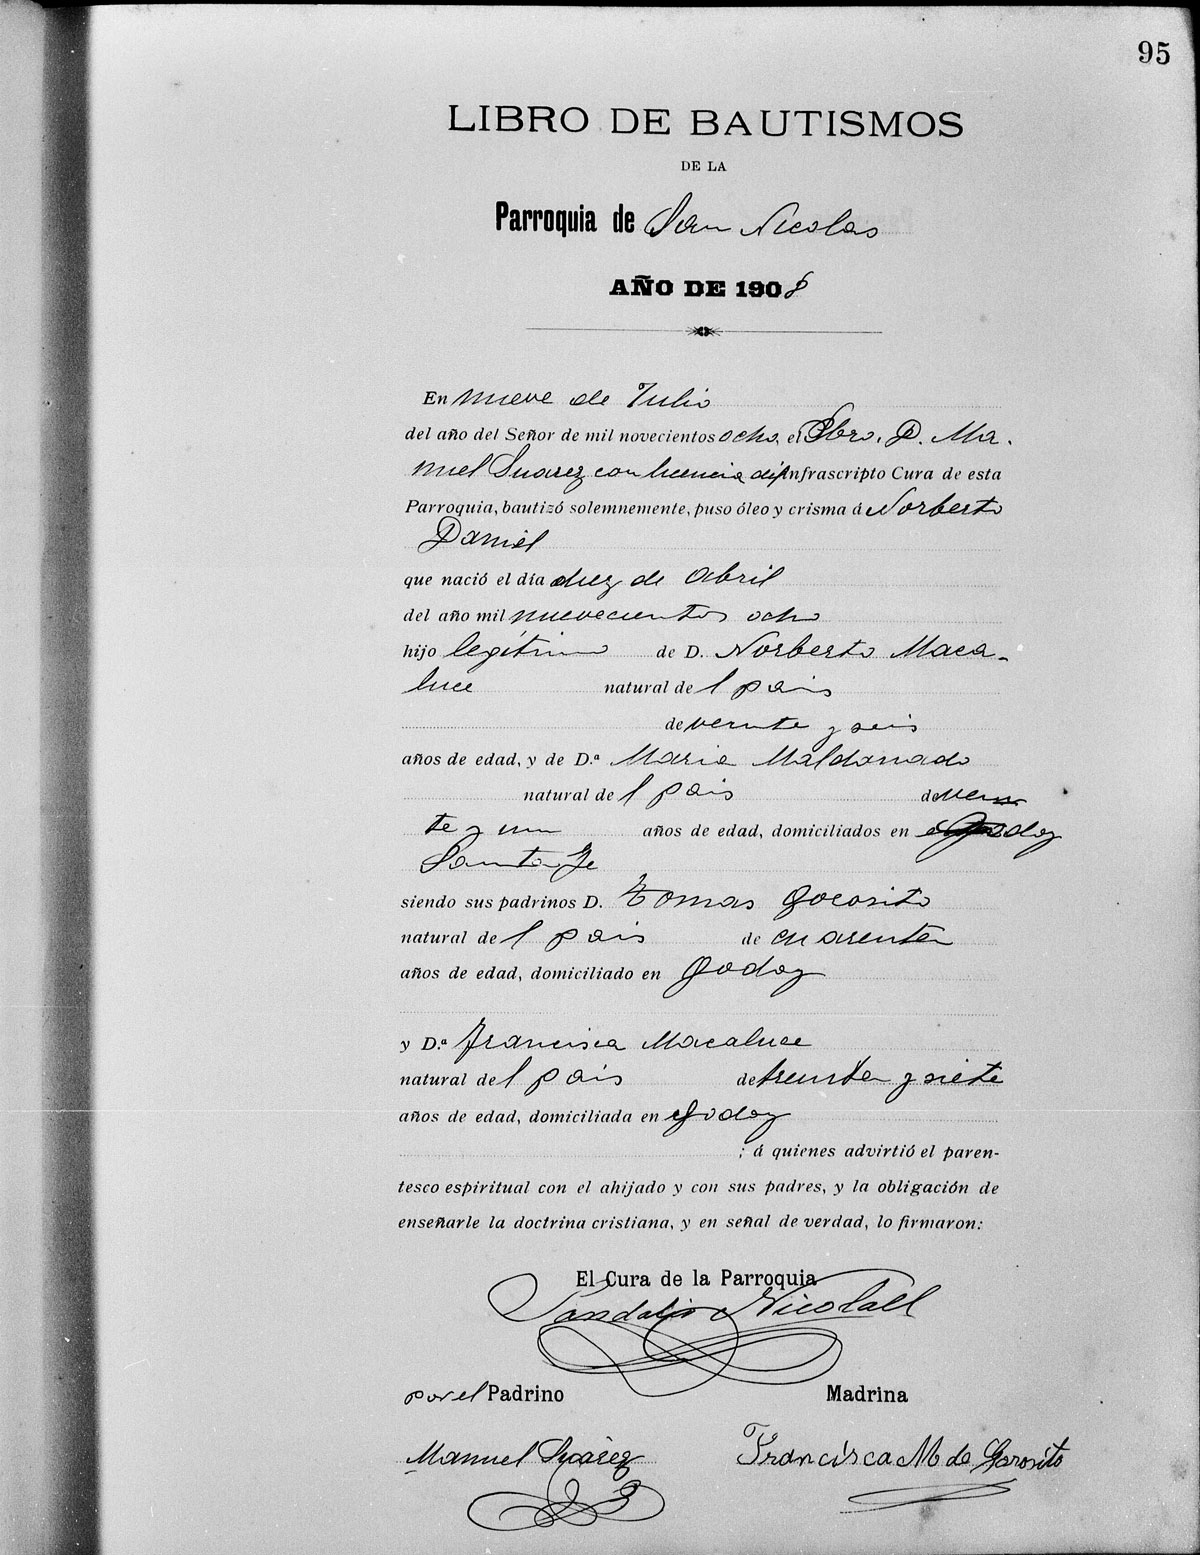 95
LIBRO DE BAUTISMOS
DE LA
Parroquia de San Nicolas
AÑO DE 1908
En nueve de Julio
del año del Señor de mil novecientos ocho, el Pbro. D. Ma-
nuel Suarez con licencia del infrascripto Cura de esta
Parroquia, bautizó solemnemente, puso óleo y crisma á Norberto
Daniel
que nació el día diez de Abril
del año mil nuevecientos ocho
hijo legítimo de D. Norberto Maca-
luce natural del pais
de veinte y seis
años de edad, y de D.ª Maria Maldonado
natural del pais de vein
te y un años de edad, domiciliados en Godoy
Santa Fe
siendo sus padrinos D. Tomas Gorosito
natural del pais de cuarenta
años de edad, domiciliado en Godoy
y D.ª Francisca Macaluce
natural del pais de treinta y siete
años de edad, domiciliada en Godoy
; á quienes advirtió el paren-
tesco espiritual con el ahijado y con sus padres, y la obligación de
enseñarle la doctrina cristiana, y en señal de verdad, lo firmaron:
El Cura de la Parroquia
por el Padrino Madrina
Manuel Suárez Francisca M de Gorosito